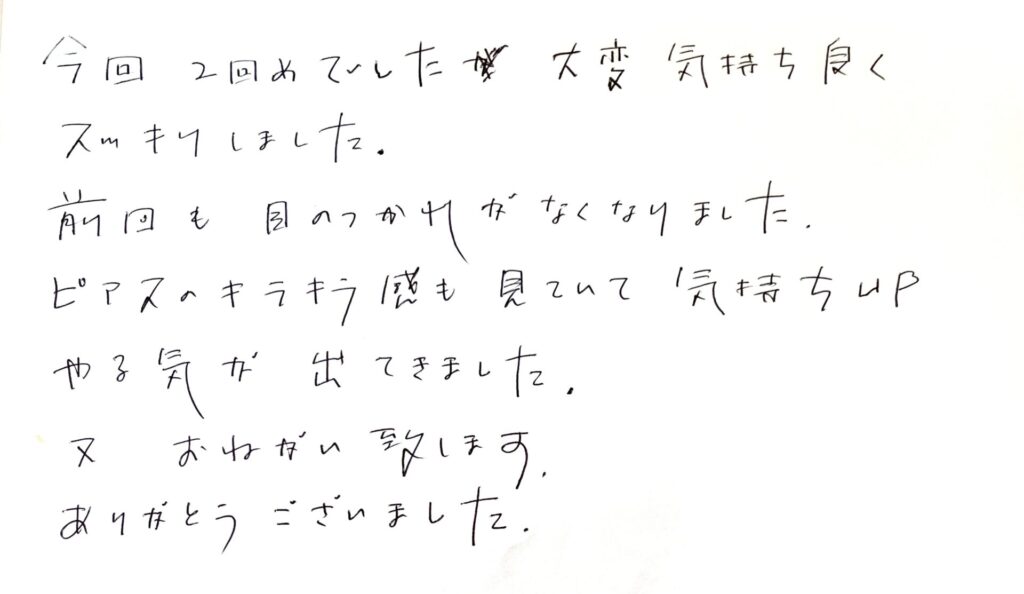 今回 2回めでしたが 大変 気持ち良く
スッキリしました.
前回も 目のつかれがなくなりました.
ピアスのキラキラ感も 見ていて 気持ちup
やる気が 出てきました.
又 おねがい致します.
ありがとうございました.